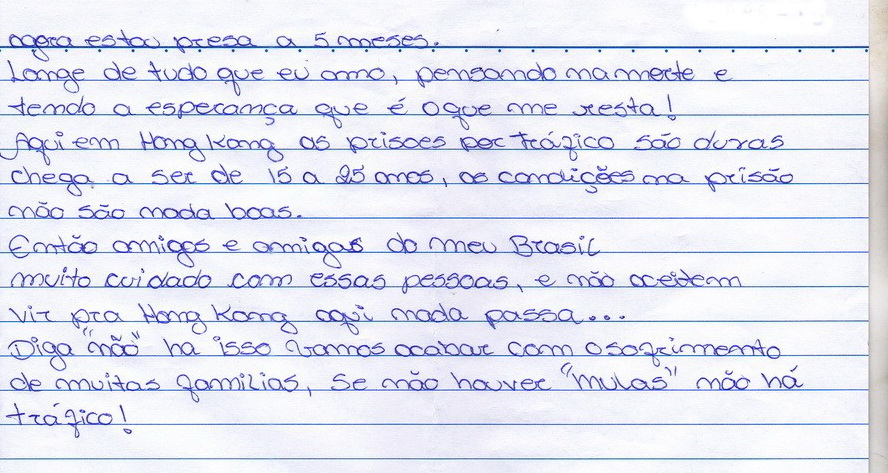 agora estou presa a 5 meses.
Longe de tudo que eu amo, pensando na mente e
tendo a esperança que é oque me resta!
Aqui em Hong Kong as prisoes por tráfico são duras
chega a ser de 15 a 25 anos, as condições na prisão
não são nada boas.
Então amigos e amigas do meu Brasil
muito cuidado com essas pessoas, e não aceitem
vir pra Hong Kong aqui nada passa...
Diga "não" ha isso vamos acabar com o sofrimento
de muitas familias, se não houver "mulas" não há
tráfico!